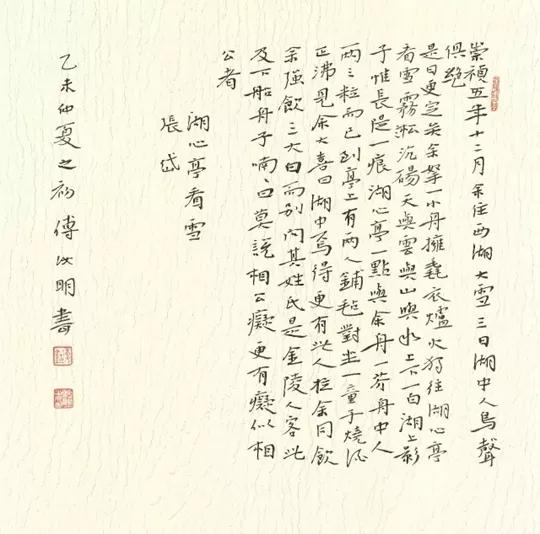 崇禎五年十二月余住西湖大雪三日湖中人鳥聲
俱絕
是日更定矣余拏一小舟擁毳衣爐火独往湖心亭
看雪霧凇沆碭天與雲與山與水上下一白湖上影
子惟長堤一痕湖心亭一點與余舟一芥舟中人
兩三粒而已到亭上有兩人鋪氈對坐一童子燒酒
正沸見余大喜曰湖中焉得更有此人拉余同飲
余強飲三大白而別問其姓氏是金陵人客此
及下船舟子喃々曰莫說相公癡更有癡似相
公者
湖心亭看雪
張岱
乙未仲夏之初傅汝明書